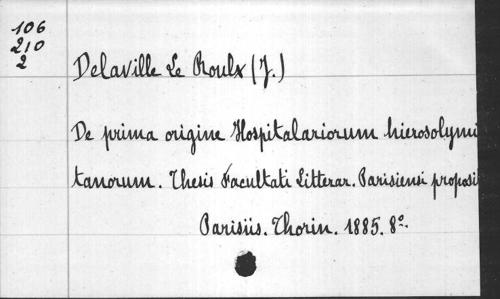 106
210
2
Delaville Le Roulx (J.)
De prima origine Hospitalariorum hierosolymi
tanorum. Thesis Facultati Litterar. Parisiensi proposi
Parisiis. Thorin. 1885. 8°.